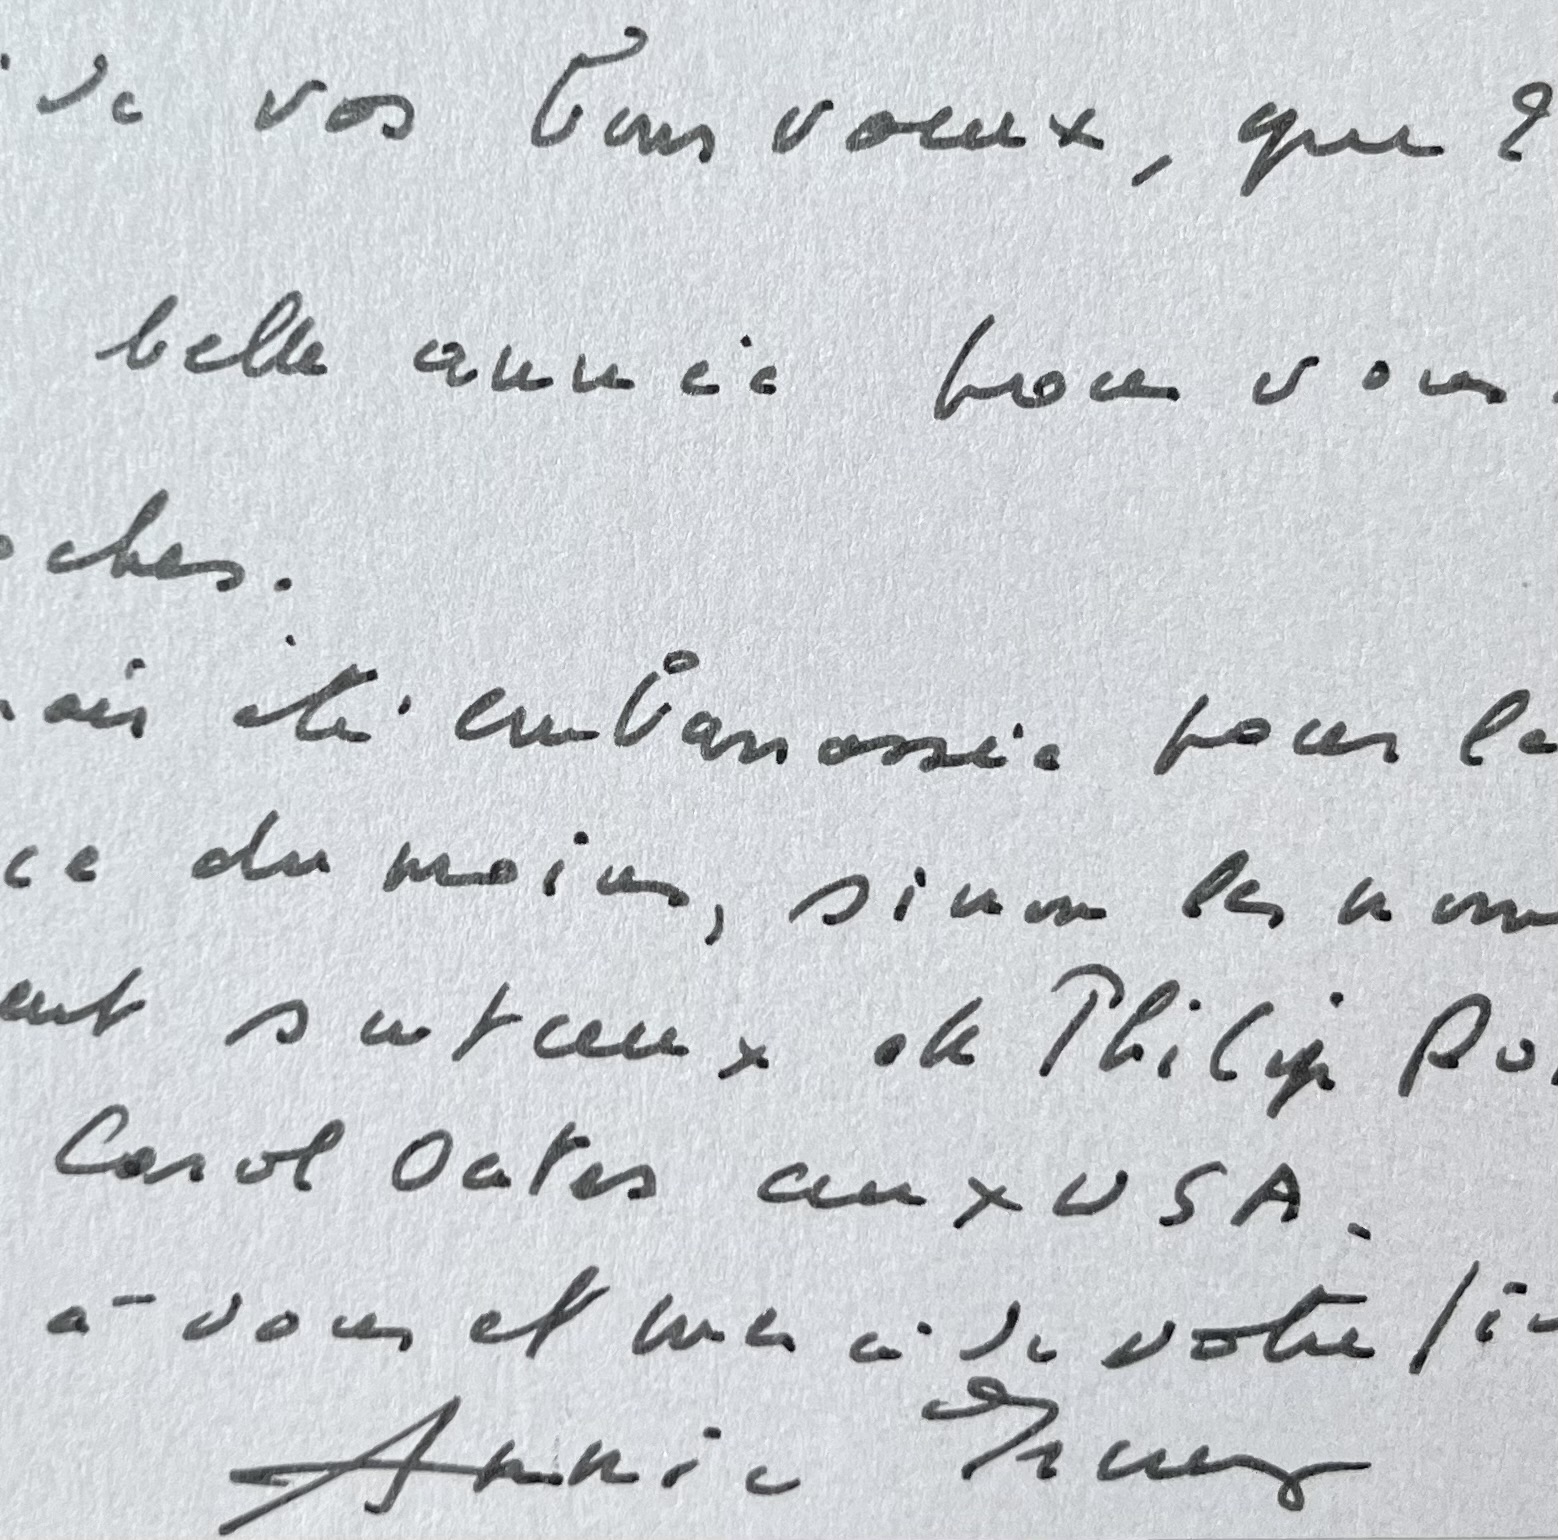 de vos bons voeux, que 2
belle année pour vous
oches.
ais été embarrassée pour le
ce du moins, sinon les nom
ent surtout ceux de Philip Ro
Carol Oates aux USA.
à vous et merci de votre li
Annie Ernaux